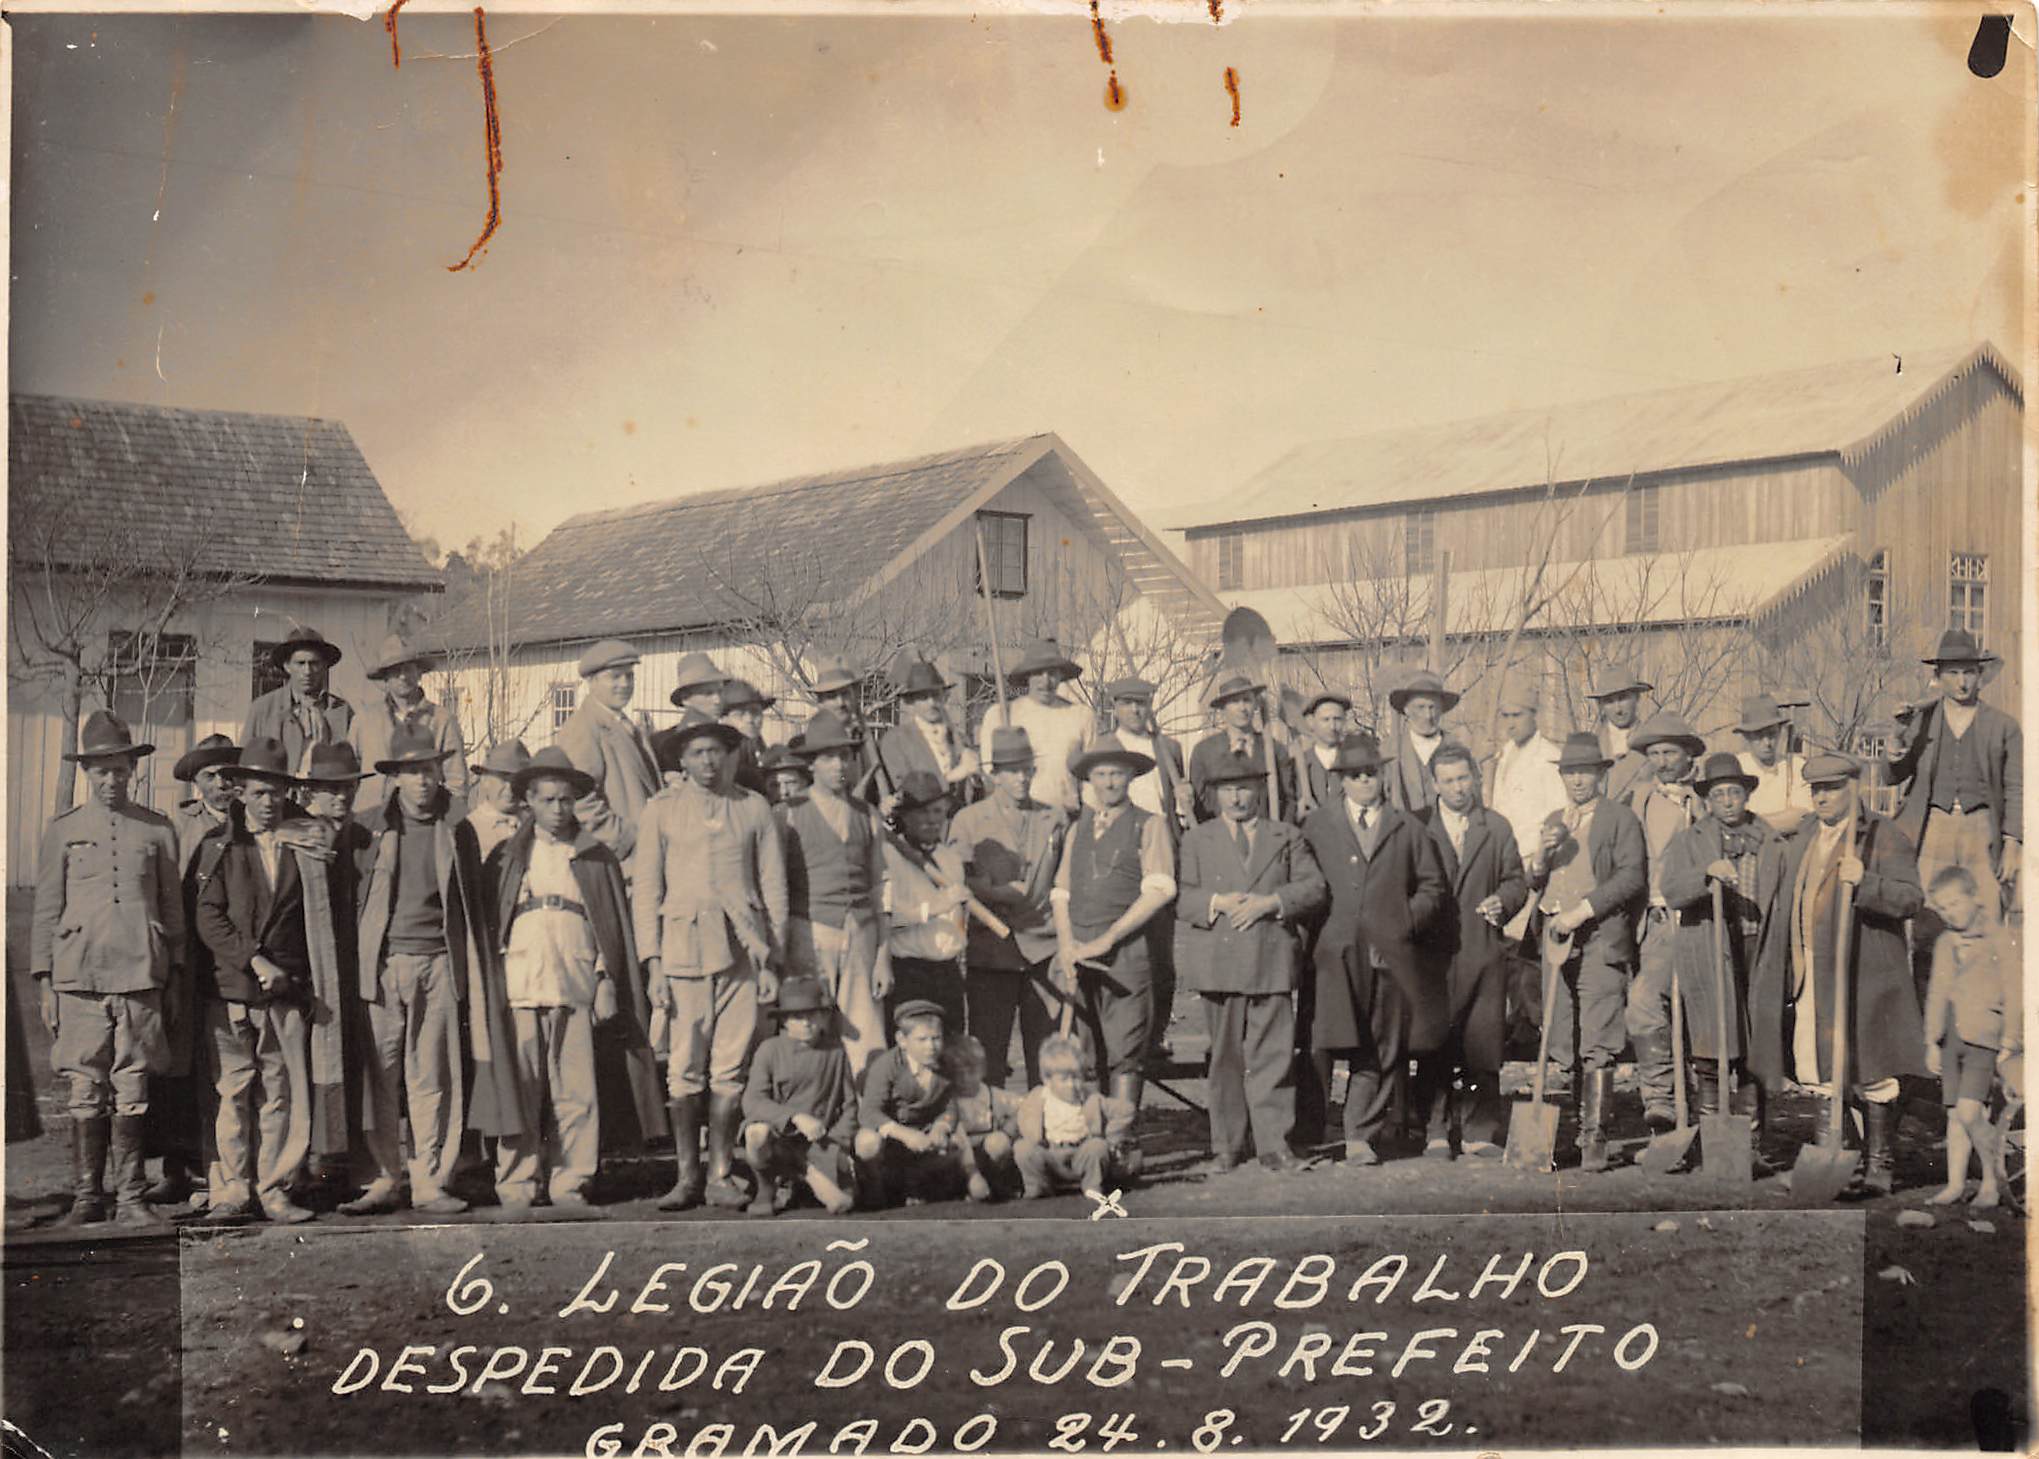 6. LEGIÃO DO TRABALHO
DESPEDIDA DO SUB-PREFEITO
GRAMADO 24.8.1932.